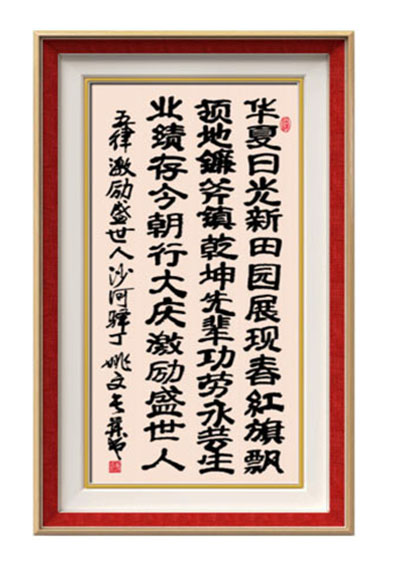 华夏日光新田园展现春红旗飘
地镰斧镇乾坤先辈功劳永生
业绩存今朝行大庆激励盛世人
五律激励盛世人沙河驿丁姚文长